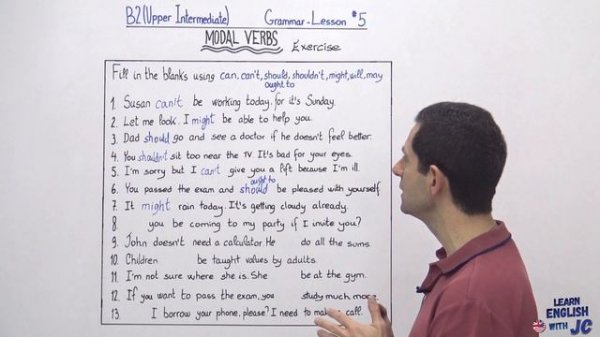 B2 (Upper Intermediate) Grammar-Lesson #5
MODAL VERBS Exercise
Fill in the blanks using can, can't, should, shouldn't, might, will, may
ought to
1. Susan can't be working today, for it's Sunday.
2. Let me look. I might be able to help you.
3. Dad should go and see a doctor if he doesn't feel better.
4. You shouldn't sit too near the TV. It's bad for your eyes.
5. I'm sorry but I can't give you a lift because I'm ill.
ought to
6. You passed the exam and should be pleased with yourself
7. It might rain today. It's getting cloudy already.
8. you be coming to my party if I invite you?
9. John doesn't need a calculator. He do all the sums
10. Children be taught values by adults.
11. I'm not sure where she is. She be at the gym.
12. If you want to pass the exam, you study much more.
13. I borrow your phone, please? I need to make a call.
LEARN
ENGLISH
WITH JC